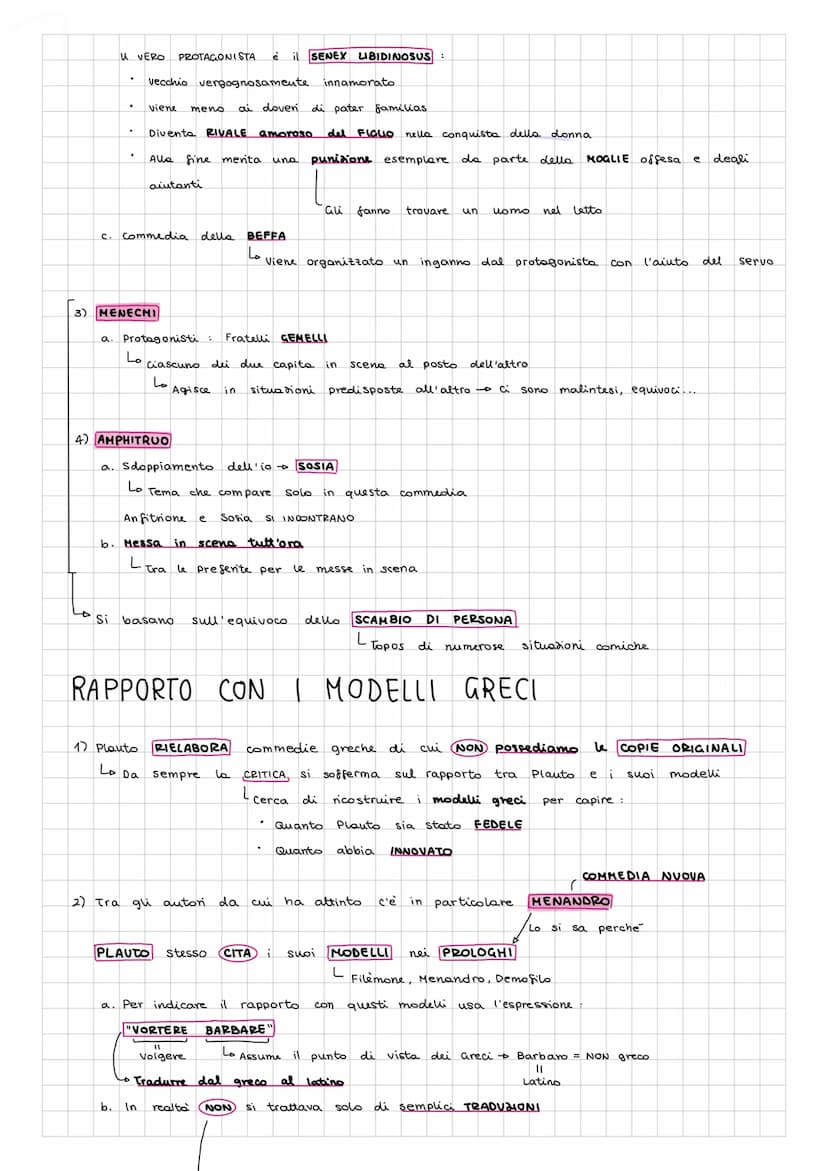 Il VERO PROTAGONISTA è il SENEX LIBIDINOSUS :
• Vecchio vergognosamente innamorato
• Viene meno ai doveri di pater familias
• Diventa RIVALE amoroso del FIGLIO nella conquista della donna
• Alla fine merita una punizione esemplare da parte della MOGLIE offesa e degli
aiutanti
Gli fanno trovare un uomo nel letto
c. Commedia della BEFFA
↳ Viene organizzato un inganno dal protagonista con l'aiuto del servo
3) MENECMI
a. Protagonisti : Fratelli GEMELLI
↳ Ciascuno dei due capita in scena al posto dell'altro
↳ Agisce in situazioni predisposte all'altro → Ci sono malintesi, equivoci...
4) AMPHITRUO
a. Sdoppiamento dell'io → SOSIA
↳ Tema che compare solo in questa commedia
Anfitrione e Sosia SI INCONTRANO
b. Messa in scena tutt'ora
↳ Tra le preferite per le messe in scena
↳ Si basano sull'equivoco dello SCAMBIO DI PERSONA
↳ Topos di numerose situazioni comiche
RAPPORTO CON I MODELLI GRECI
1) Plauto RIELABORA commedie greche di cui NON possediamo le COPIE ORIGINALI
↳ Da sempre la CRITICA si sofferma sul rapporto tra Plauto e i suoi modelli
↳ Cerca di ricostruire i modelli greci per capire :
• Quanto Plauto sia stato FEDELE
• Quanto abbia INNOVATO
COMMEDIA NUOVA
2) Tra gli autori da cui ha attinto c'è in particolare MENANDRO
Lo si sa perché
PLAUTO stesso CITA i suoi MODELLI nei PROLOGHI
↳ Filèmone, Menandro, Demofilo
a. Per indicare il rapporto con questi modelli usa l'espressione :
"VORTERE BARBARE"
Volgere ↳ Assume il punto di vista dei Greci → Barbaro = NON greco
↳ Tradurre dal greco al latino = Latino
b. In realtà NON si trattava solo di semplici TRADUZIONI